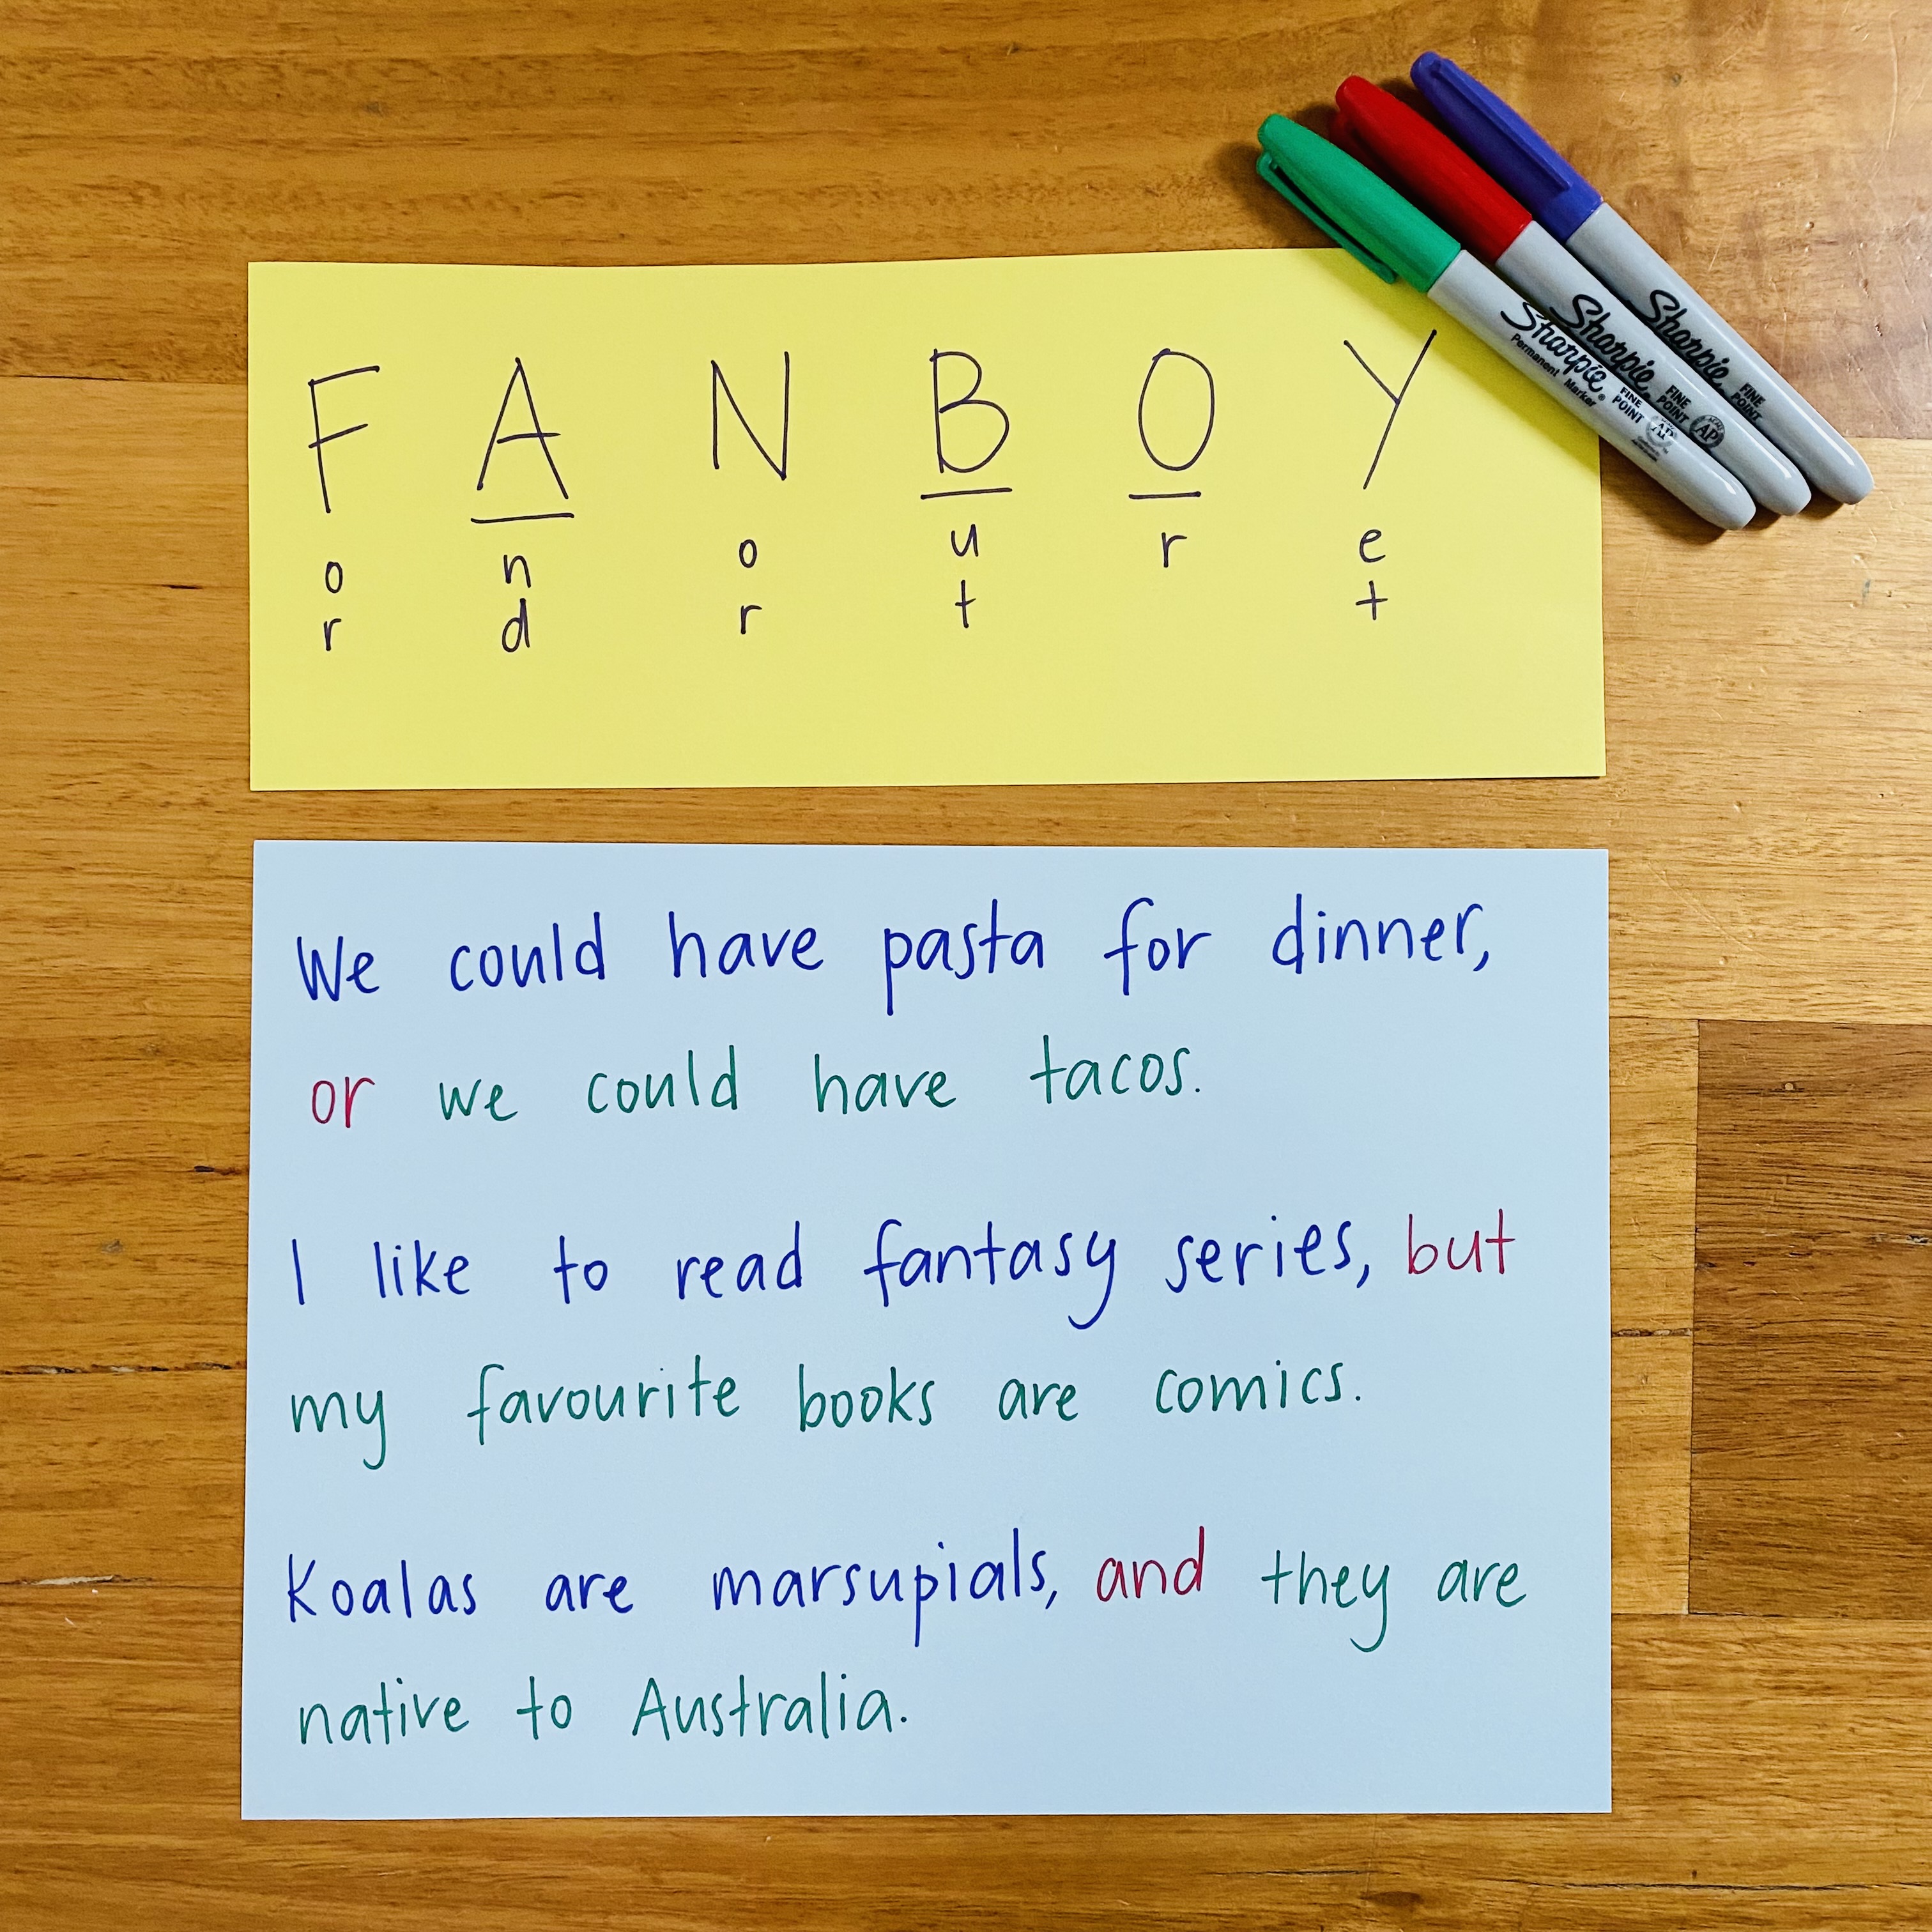 F A N B O Y
o n o u r e
r d r t t
Sharpie
FINE POINT
Sharpie
FINE POINT
AP
Sharpie.
Permanent Marker
FINE POINT
AP
We could have pasta for dinner,
or we could have tacos.
I like to read fantasy series, but
my favourite books are comics.
Koalas are marsupials, and they are
native to Australia.